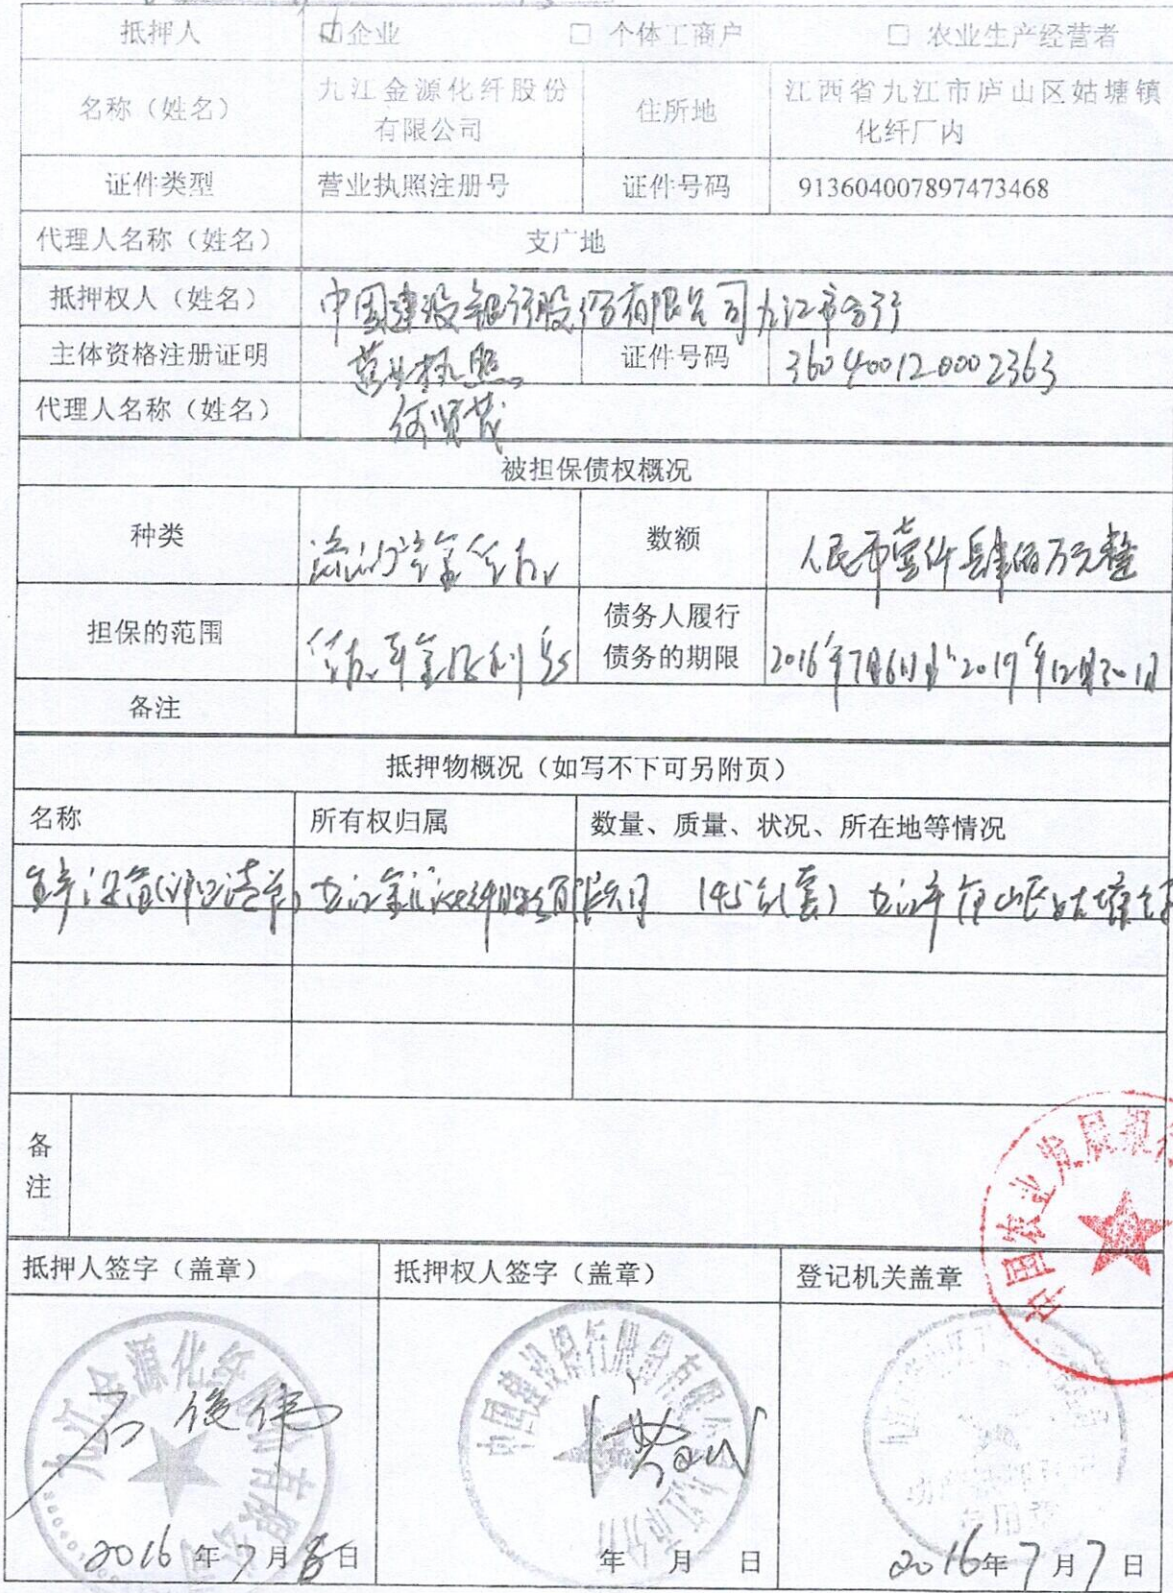 抵押人 ☑企业 □ 个体工商户 □ 农业生产经营者
名称（姓名） 九江金源化纤股份有限公司 住所地 江西省九江市庐山区姑塘镇化纤厂内
证件类型 营业执照注册号 证件号码 913604007897473468
代理人名称（姓名） 支广地
抵押权人（姓名） 中国建设银行股份有限公司九江市分行
主体资格注册证明 营业执照 证件号码 360400120002363
代理人名称（姓名） 何贤茂
被担保债权概况
种类 流动资金贷款 数额 人民币壹仟肆佰万元整
担保的范围 贷款本金及利息 债务人履行债务的期限 2016年7月6日 2019年12月30日
备注
抵押物概况（如写不下可另附页）
名称 所有权归属 数量、质量、状况、所在地等情况
生产设备(详见清单) 九江金源化纤股份有限公司 145台(套) 九江市庐山区姑塘镇
备注
中国农业发展银行
抵押人签字（盖章） 抵押权人签字（盖章） 登记机关盖章
九江金源化纤股份有限公司
中国建设银行股份有限公司九江市分行
石俊伟
2016年7月6日 年 月 日 2016年7月7日